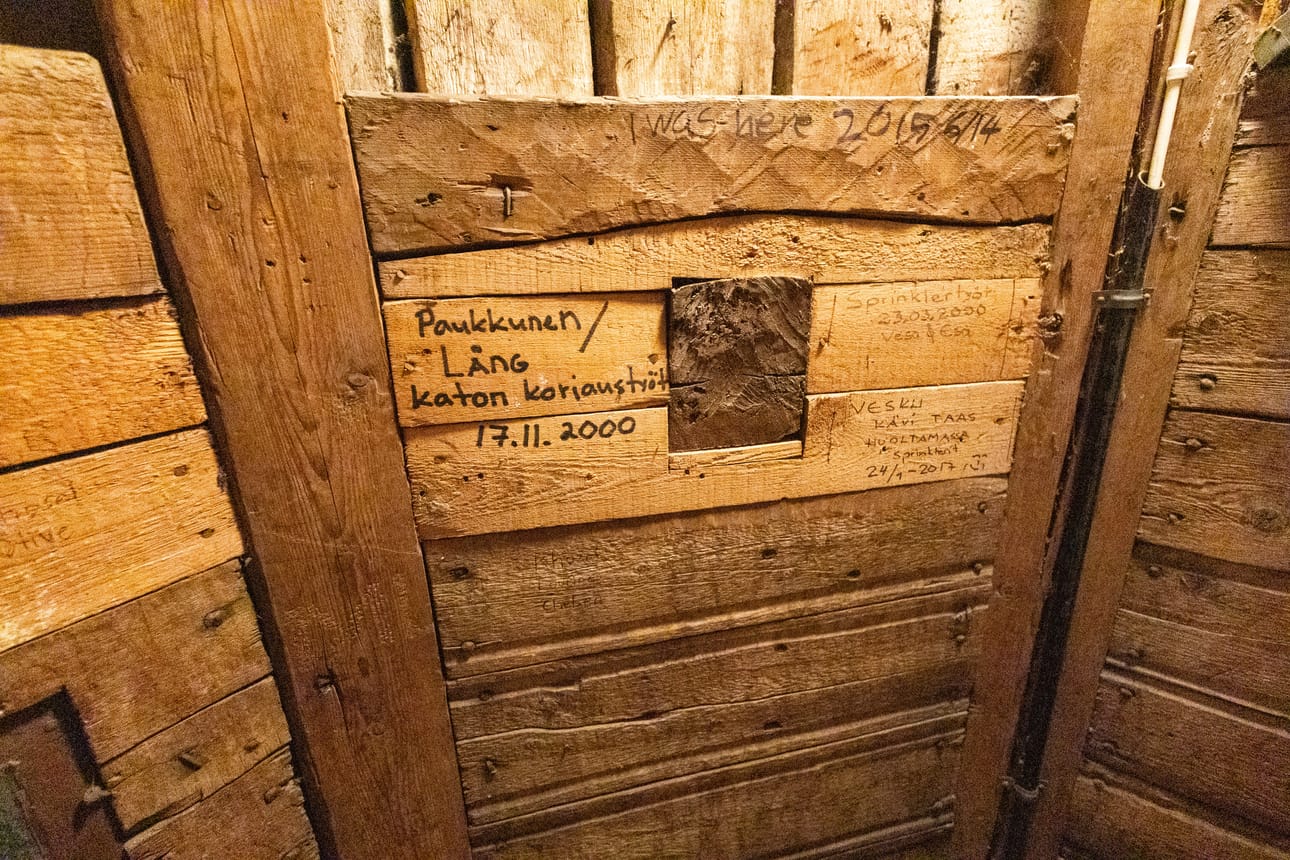 I was here 2015/6/14
Paukkunen/
LÅNG
katon korjaustyöt
17.11. 2000
Sprinklertyöt
23.03.2000
Vesa & Esa
VESKU
KÄVI TAAS
HUOLTAMASSA
Sprinklerit
24/1-2017